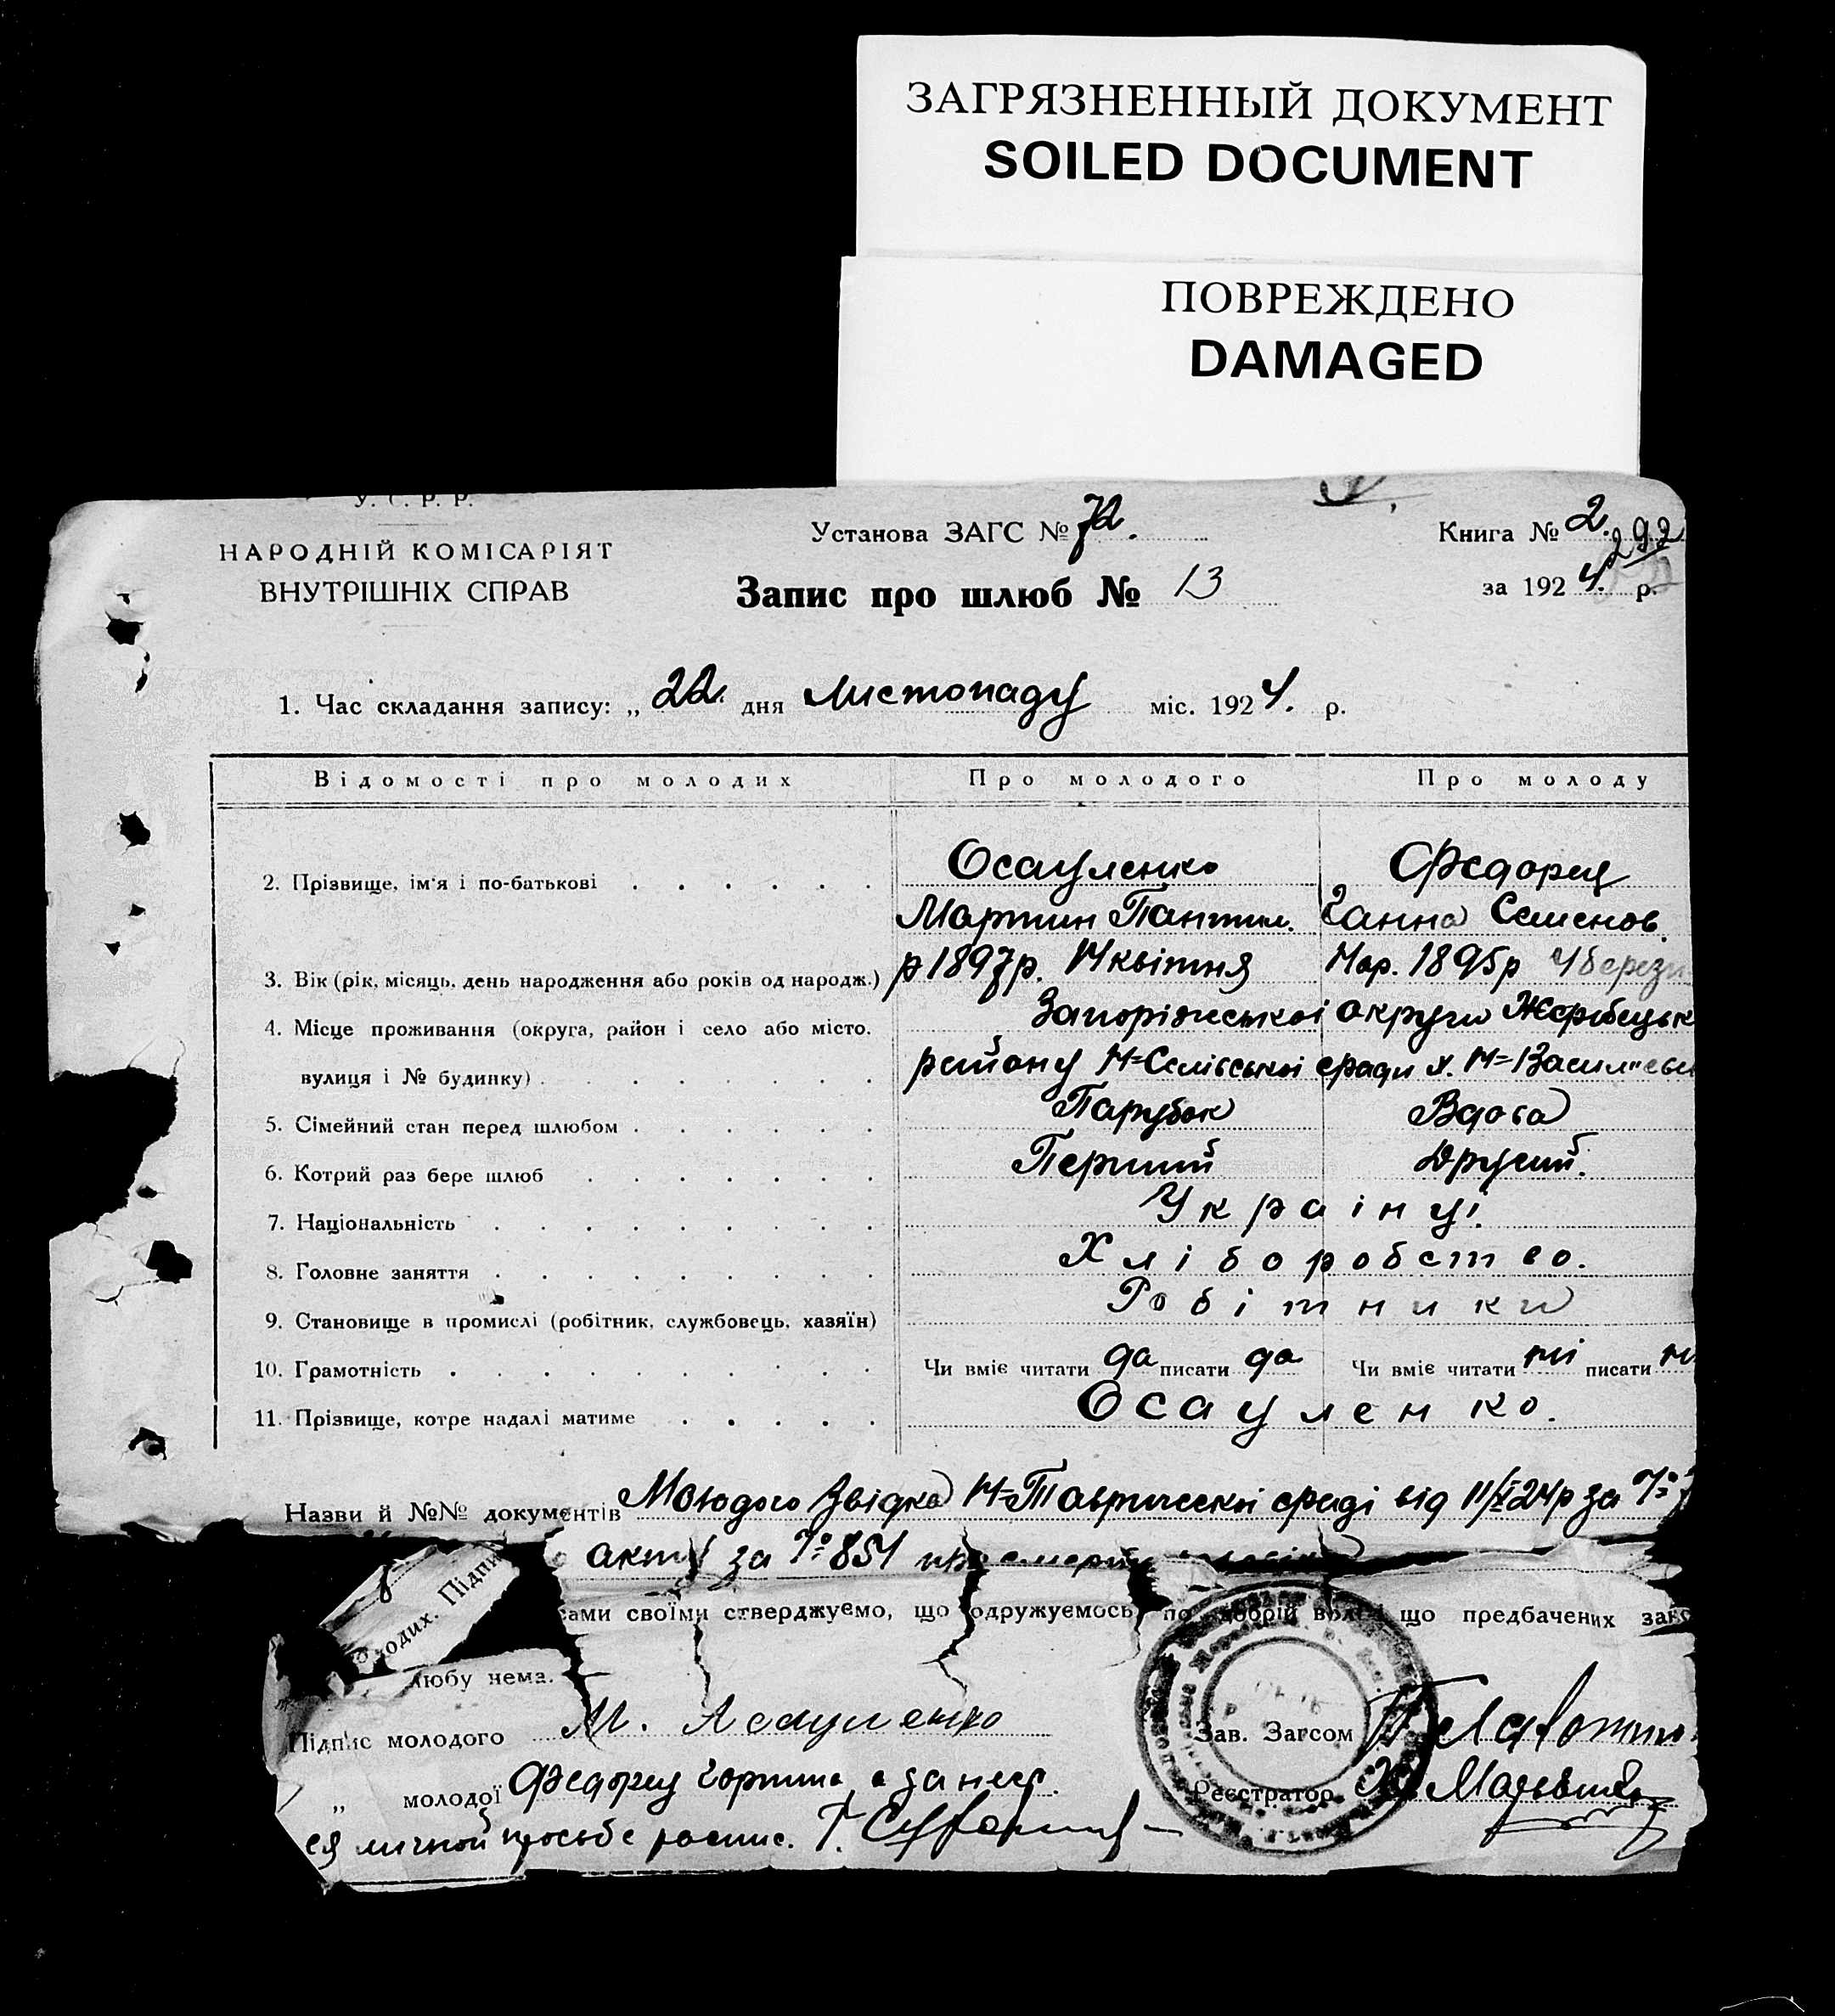 ЗАГРЯЗНЕННЫЙ ДОКУМЕНТ
SOILED DOCUMENT
ПОВРЕЖДЕНО
DAMAGED
У. С. Р. Р.
НАРОДНІЙ КОМІСАРІЯТ
ВНУТРІШНІХ СПРАВ
Установа ЗАГС № 72.
Книга № 2.
292
Запис про шлюб № 13
за 1924. р.
1. Час складання запису: „ 22 дня Листопаду міс. 1924. р.
Відомості про молодих Про молодого Про молоду
2. Прізвище, ім'я і по-батькові Осауленко Федорец
Мартин Пантил. Ганна Семенов.
3. Вік (рік, місяць, день народження або років од народж.) р 1897р. 14 квітня Нар. 1895р 4 березн
4. Місце проживання (округа, район і село або місто, Запоріжської округи Жеребецьк
вулиця і № будинку) району Н=Селівської сради х. Н=Васил
5. Сімейний стан перед шлюбом Парубок Вдова
6. Котрий раз бере шлюб Перший Другий.
7. Національність Українці
8. Головне заняття Хліборобство.
9. Становище в промислі (робітник, службовець, хазяїн) Робітники
10. Грамотність Чи вміє читати да писати да Чи вміє читати ні писати ні
11. Прізвище, котре надалі матиме Осауленко.
Назви й №№ документів Молодого Звідка Н=Таврической сради від 11/X 24р за №
акту за № 851 про смерть
молодих. Підпи
сами своїми стверджуємо, що одружуємось по добрій волі і що предбачених зако
любу нема.
Підпис молодого М. Асауленко
Зав. Загсом
„ молодої Федорец а за неё
Реєстратор
ея личной просьбе распис.